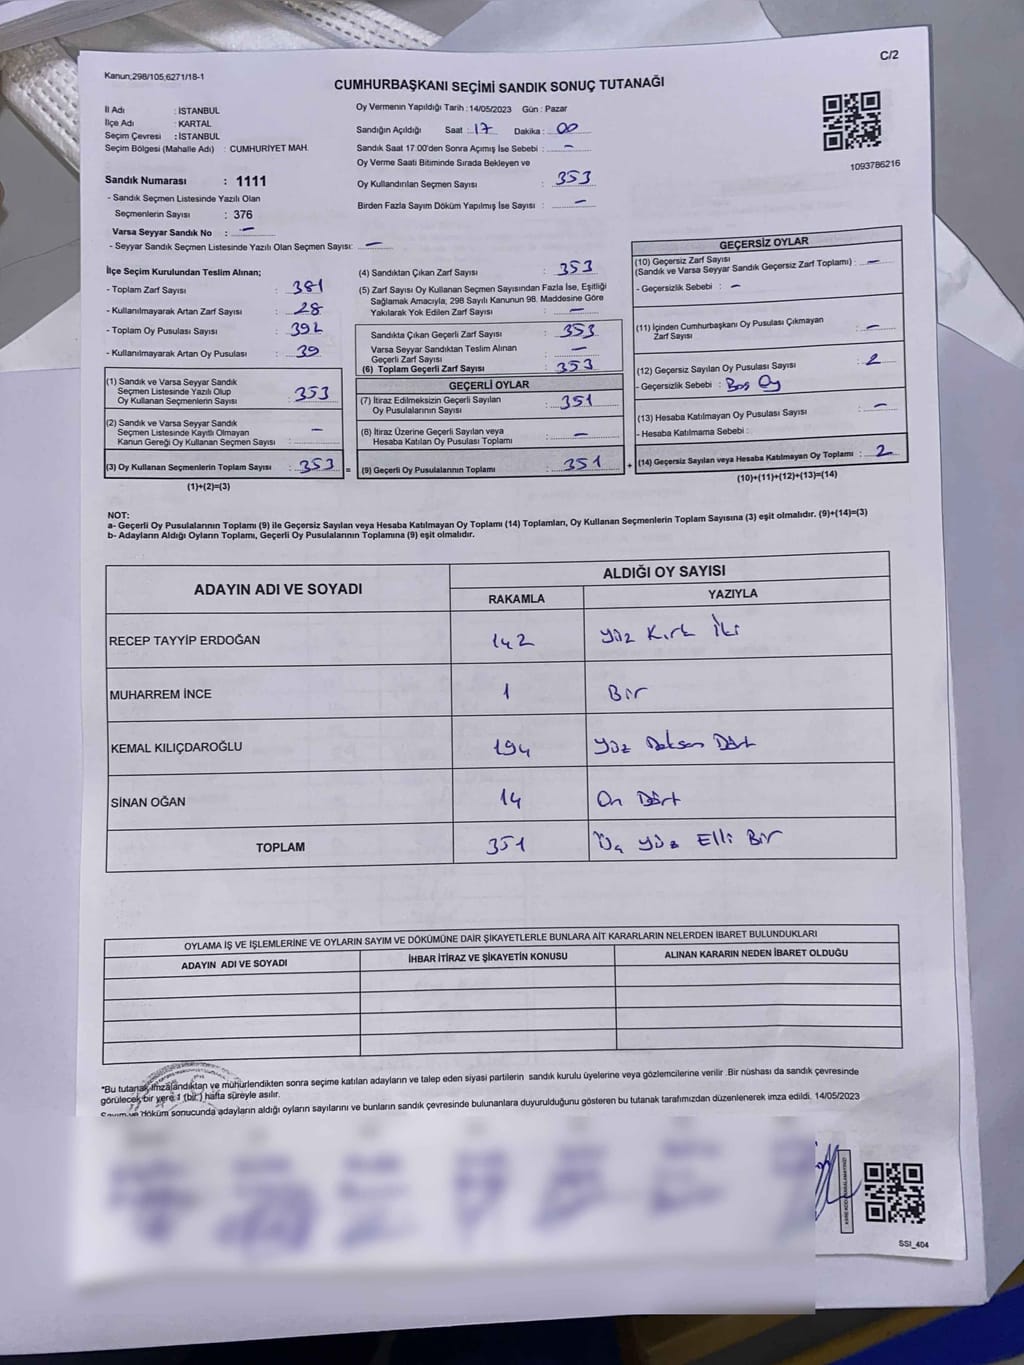 C/2
Kanun;298/105;6271/18-1
CUMHURBAŞKANI SEÇİMİ SANDIK SONUÇ TUTANAĞI
İl Adı : İSTANBUL
İlçe Adı : KARTAL
Seçim Çevresi : İSTANBUL
Seçim Bölgesi (Mahalle Adı) : CUMHURİYET MAH.
Sandık Numarası : 1111
- Sandık Seçmen Listesinde Yazılı Olan
Seçmenlerin Sayısı : 376
Varsa Seyyar Sandık No : -
- Seyyar Sandık Seçmen Listesinde Yazılı Olan Seçmen Sayısı: -
Oy Vermenin Yapıldığı Tarih : 14/05/2023 Gün : Pazar
Sandığın Açıldığı Saat : 17 Dakika : 00
Sandık Saat 17:00'den Sonra Açımış İse Sebebi : -
Oy Verme Saati Bitiminde Sırada Bekleyen ve
Oy Kullandırılan Seçmen Sayısı : 353
Birden Fazla Sayım Döküm Yapılmış İse Sayısı : -
1093786216
İlçe Seçim Kurulundan Teslim Alınan;
- Toplam Zarf Sayısı : 381
- Kullanılmayarak Artan Zarf Sayısı : 28
- Toplam Oy Pusulası Sayısı : 392
- Kullanılmayarak Artan Oy Pusulası : 39
(1) Sandık ve Varsa Seyyar Sandık
Seçmen Listesinde Yazılı Olup
Oy Kullanan Seçmenlerin Sayısı : 353
(2) Sandık ve Varsa Seyyar Sandık
Seçmen Listesinde Kayıtlı Olmayan
Kanun Gereği Oy Kullanan Seçmen Sayısı : -
(3) Oy Kullanan Seçmenlerin Toplam Sayısı : 353 =
(1)+(2)=(3)
(4) Sandıktan Çıkan Zarf Sayısı : 353
(5) Zarf Sayısı Oy Kullanan Seçmen Sayısından Fazla İse, Eşitliği
Sağlamak Amacıyla, 298 Sayılı Kanunun 98. Maddesine Göre
Yakılarak Yok Edilen Zarf Sayısı : -
Sandıkta Çıkan Geçerli Zarf Sayısı : 353
Varsa Seyyar Sandıktan Teslim Alınan
Geçerli Zarf Sayısı : -
(6) Toplam Geçerli Zarf Sayısı : 353
GEÇERLİ OYLAR
(7) İtiraz Edilmeksizin Geçerli Sayılan
Oy Pusulalarının Sayısı : 351
(8) İtiraz Üzerine Geçerli Sayılan veya
Hesaba Katılan Oy Pusulası Toplamı : -
(9) Geçerli Oy Pusulalarının Toplamı : 351 +
GEÇERSİZ OYLAR
(10) Geçersiz Zarf Sayısı
(Sandık ve Varsa Seyyar Sandık Geçersiz Zarf Toplamı) : -
- Geçersizlik Sebebi : -
(11) İçinden Cumhurbaşkanı Oy Pusulası Çıkmayan
Zarf Sayısı : -
(12) Geçersiz Sayılan Oy Pusulası Sayısı : 2
- Geçersizlik Sebebi : Boş Oy
(13) Hesaba Katılmayan Oy Pusulası Sayısı : -
- Hesaba Katılmama Sebebi :
(14) Geçersiz Sayılan veya Hesaba Katılmayan Oy Toplamı : 2
(10)+(11)+(12)+(13)=(14)
NOT:
a- Geçerli Oy Pusulalarının Toplamı (9) ile Geçersiz Sayılan veya Hesaba Katılmayan Oy Toplamı (14) Toplamları, Oy Kullanan Seçmenlerin Toplam Sayısına (3) eşit olmalıdır. (9)+(14)=(3)
b- Adayların Aldığı Oyların Toplamı, Geçerli Oy Pusulalarının Toplamına (9) eşit olmalıdır.
ADAYIN ADI VE SOYADI
ALDIĞI OY SAYISI
RAKAMLA YAZIYLA
RECEP TAYYİP ERDOĞAN 142 Yüz Kırk İki
MUHARREM İNCE 1 Bir
KEMAL KILIÇDAROĞLU 194 Yüz Doksan Dört
SİNAN OĞAN 14 On Dört
TOPLAM 351 Üç Yüz Elli Bir
OYLAMA İŞ VE İŞLEMLERİNE VE OYLARIN SAYIM VE DÖKÜMÜNE DAİR ŞİKAYETLERLE BUNLARA AİT KARARLARIN NELERDEN İBARET BULUNDUKLARI
ADAYIN ADI VE SOYADI İHBAR İTİRAZ VE ŞİKAYETİN KONUSU ALINAN KARARIN NEDEN İBARET OLDUĞU
*Bu tutanak imzalandıktan ve mühürlendikten sonra seçime katılan adayların ve talep eden siyasi partilerin sandık kurulu üyelerine veya gözlemcilerine verilir .Bir nüshası da sandık çevresinde
görülecek bir yere 1 (bir) hafta süreyle asılır.
Sayım ve döküm sonucunda adayların aldığı oyların sayılarını ve bunların sandık çevresinde bulunanlara duyurulduğunu gösteren bu tutanak tarafımızdan düzenlenerek imza edildi. 14/05/2023
SSI_404